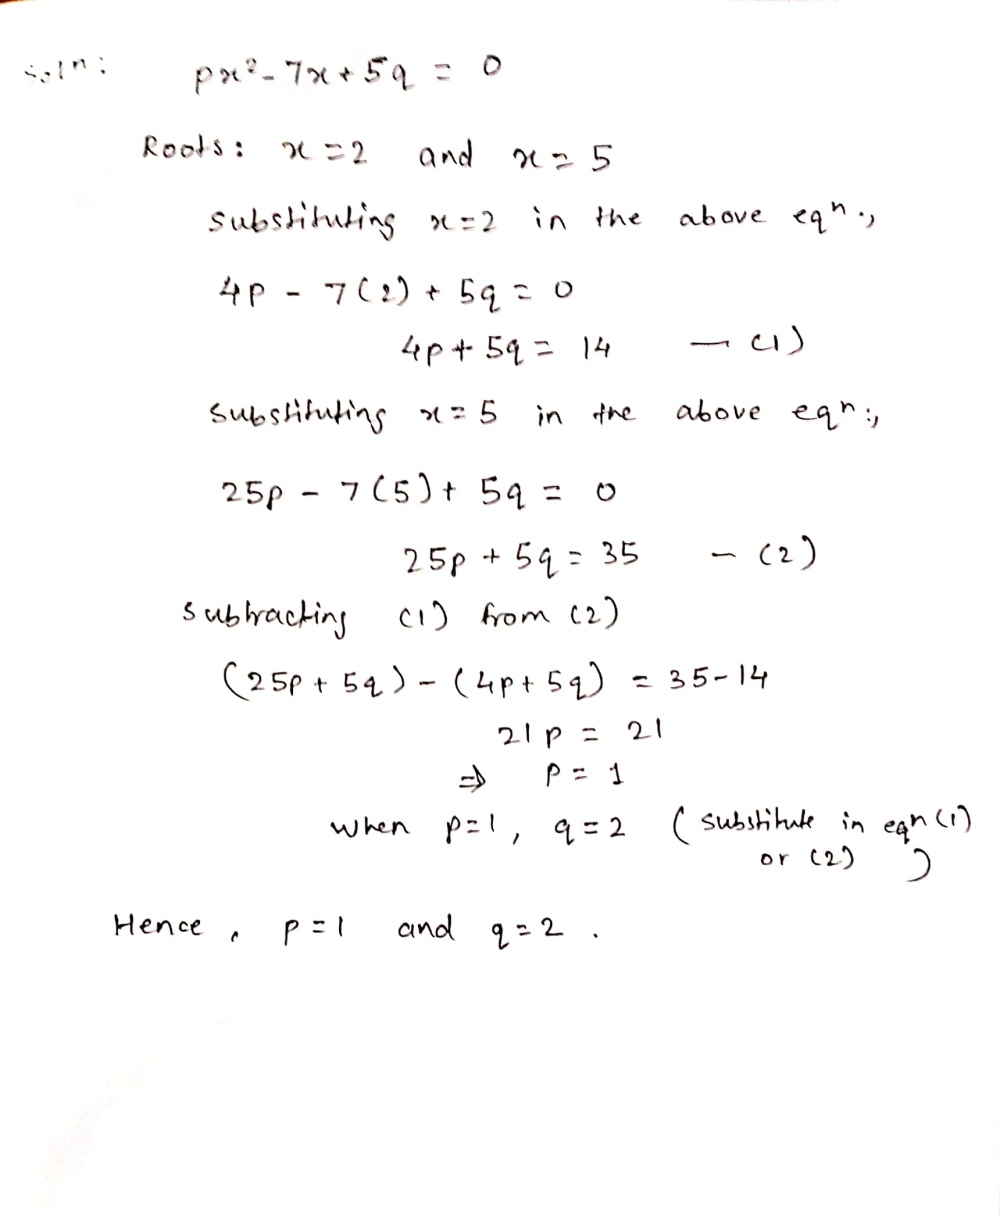 Soln: px²-7x+5q = 0
Roots: x=2 and x=5
substituting x=2 in the above eqⁿ.,
4p - 7(2) + 5q = 0
4p + 5q = 14 — (1)
Substituting x=5 in the above eqⁿ:,
25p - 7(5) + 5q = 0
25p + 5q = 35 - (2)
Subtracting (1) from (2)
(25p + 5q) - (4p + 5q) = 35-14
21p = 21
⇒ p = 1
when p=1, q=2 (substitute in eqn (1)
or (2) )
Hence, p=1 and q=2.